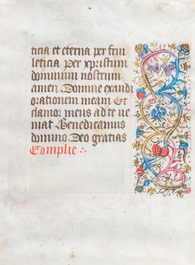 tica et eterna per frui
letica per xpristum
dominum nostrum
amen. Domine exaudi
orationem meam Et
clamor meus ad te ue
niat Benedicamus
domino Deo gratias
Complie